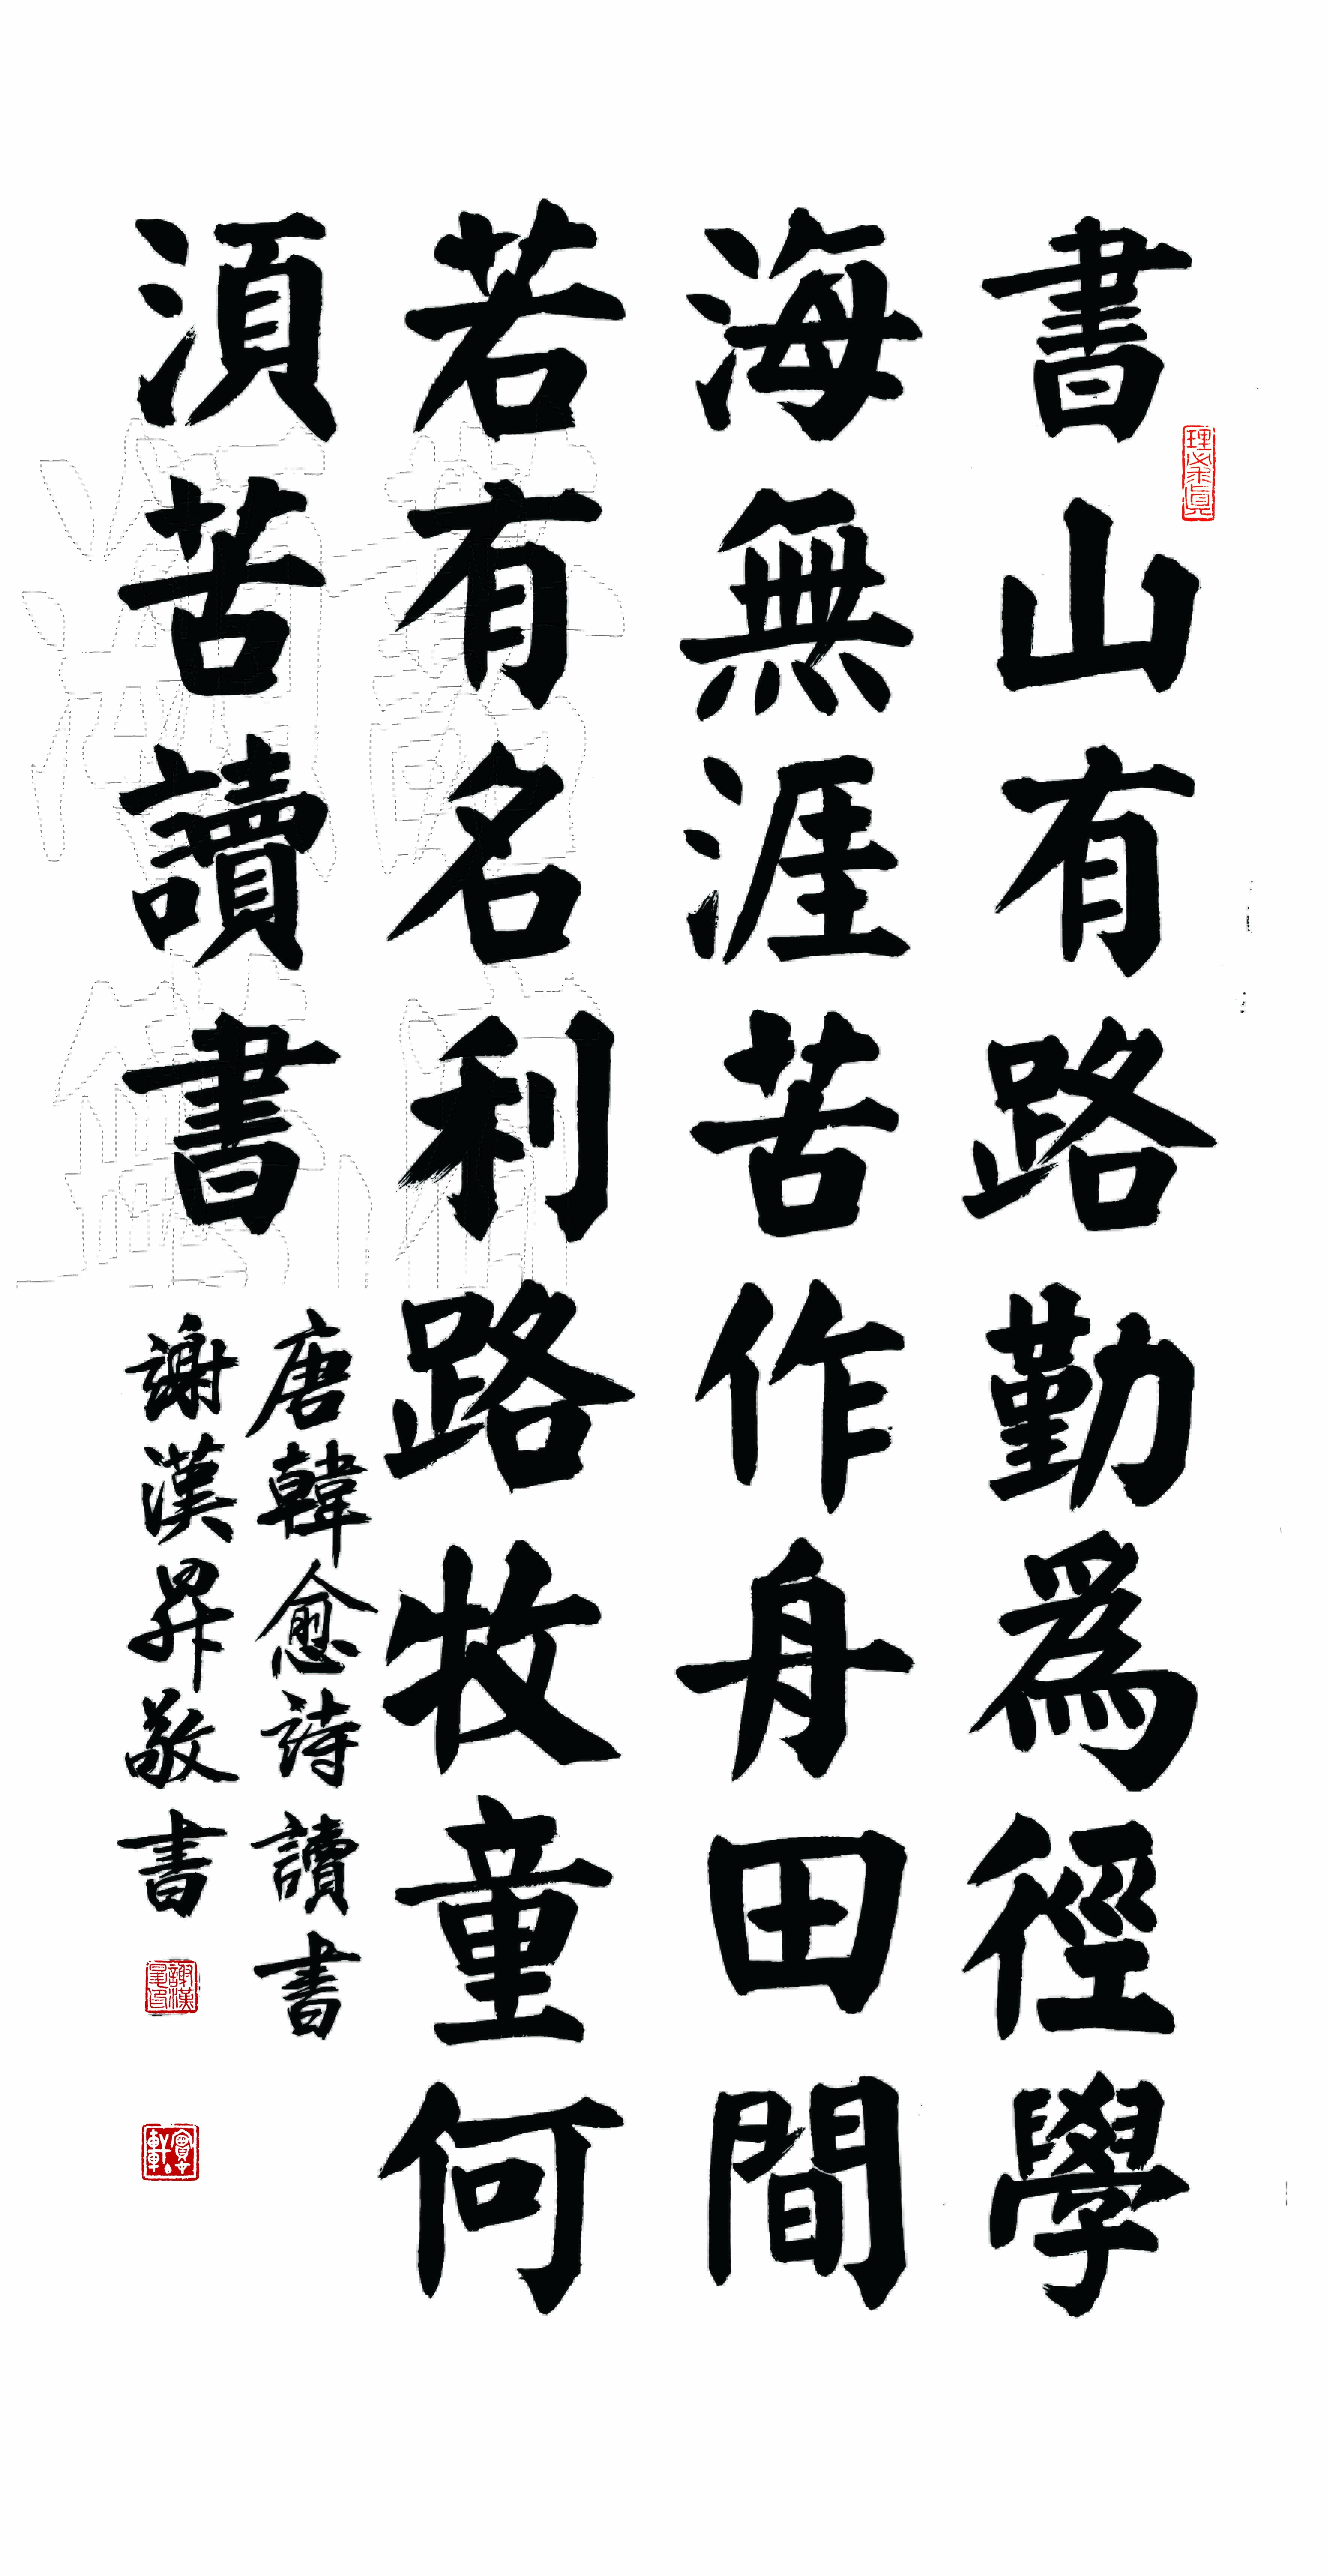 書山有路勤為徑學
海無涯苦作舟田間
若有名利路牧童何
須苦讀書
唐韓愈詩讀書
謝漢昇敬書